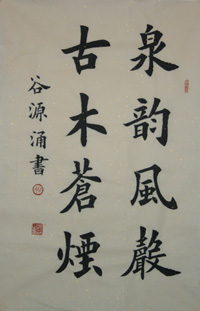 泉韵風聲
古木蒼煙
谷源涌書